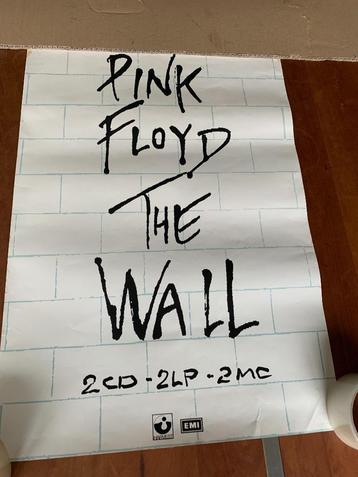 PINK
FLOYD
THE
WALL
2CD - 2LP - 2MC
EMI